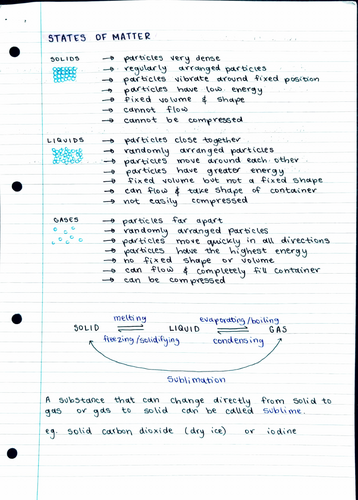 STATES OF MATTER
SOLIDS → particles very dense
→ regularly arranged particles
→ particles vibrate around fixed position
→ particles have low energy
→ fixed volume & shape
→ cannot flow
→ cannot be compressed
LIQUIDS → particles close together
→ randomly arranged particles
→ particles move around each other
→ particles have greater energy
→ fixed volume but not a fixed shape
→ can flow & take shape of container
→ not easily compressed
GASES → particles far apart
→ randomly arranged particles
→ particles move quickly in all directions
→ particles have the highest energy
→ no fixed shape or volume
→ can flow & completely fill container
→ can be compressed
melting evaporating/boiling
SOLID ⇌ LIQUID ⇌ GAS
freezing/solidifying condensing
Sublimation
A substance that can change directly from solid to
gas or gas to solid can be called sublime.
eg. solid carbon dioxide (dry ice) or iodine